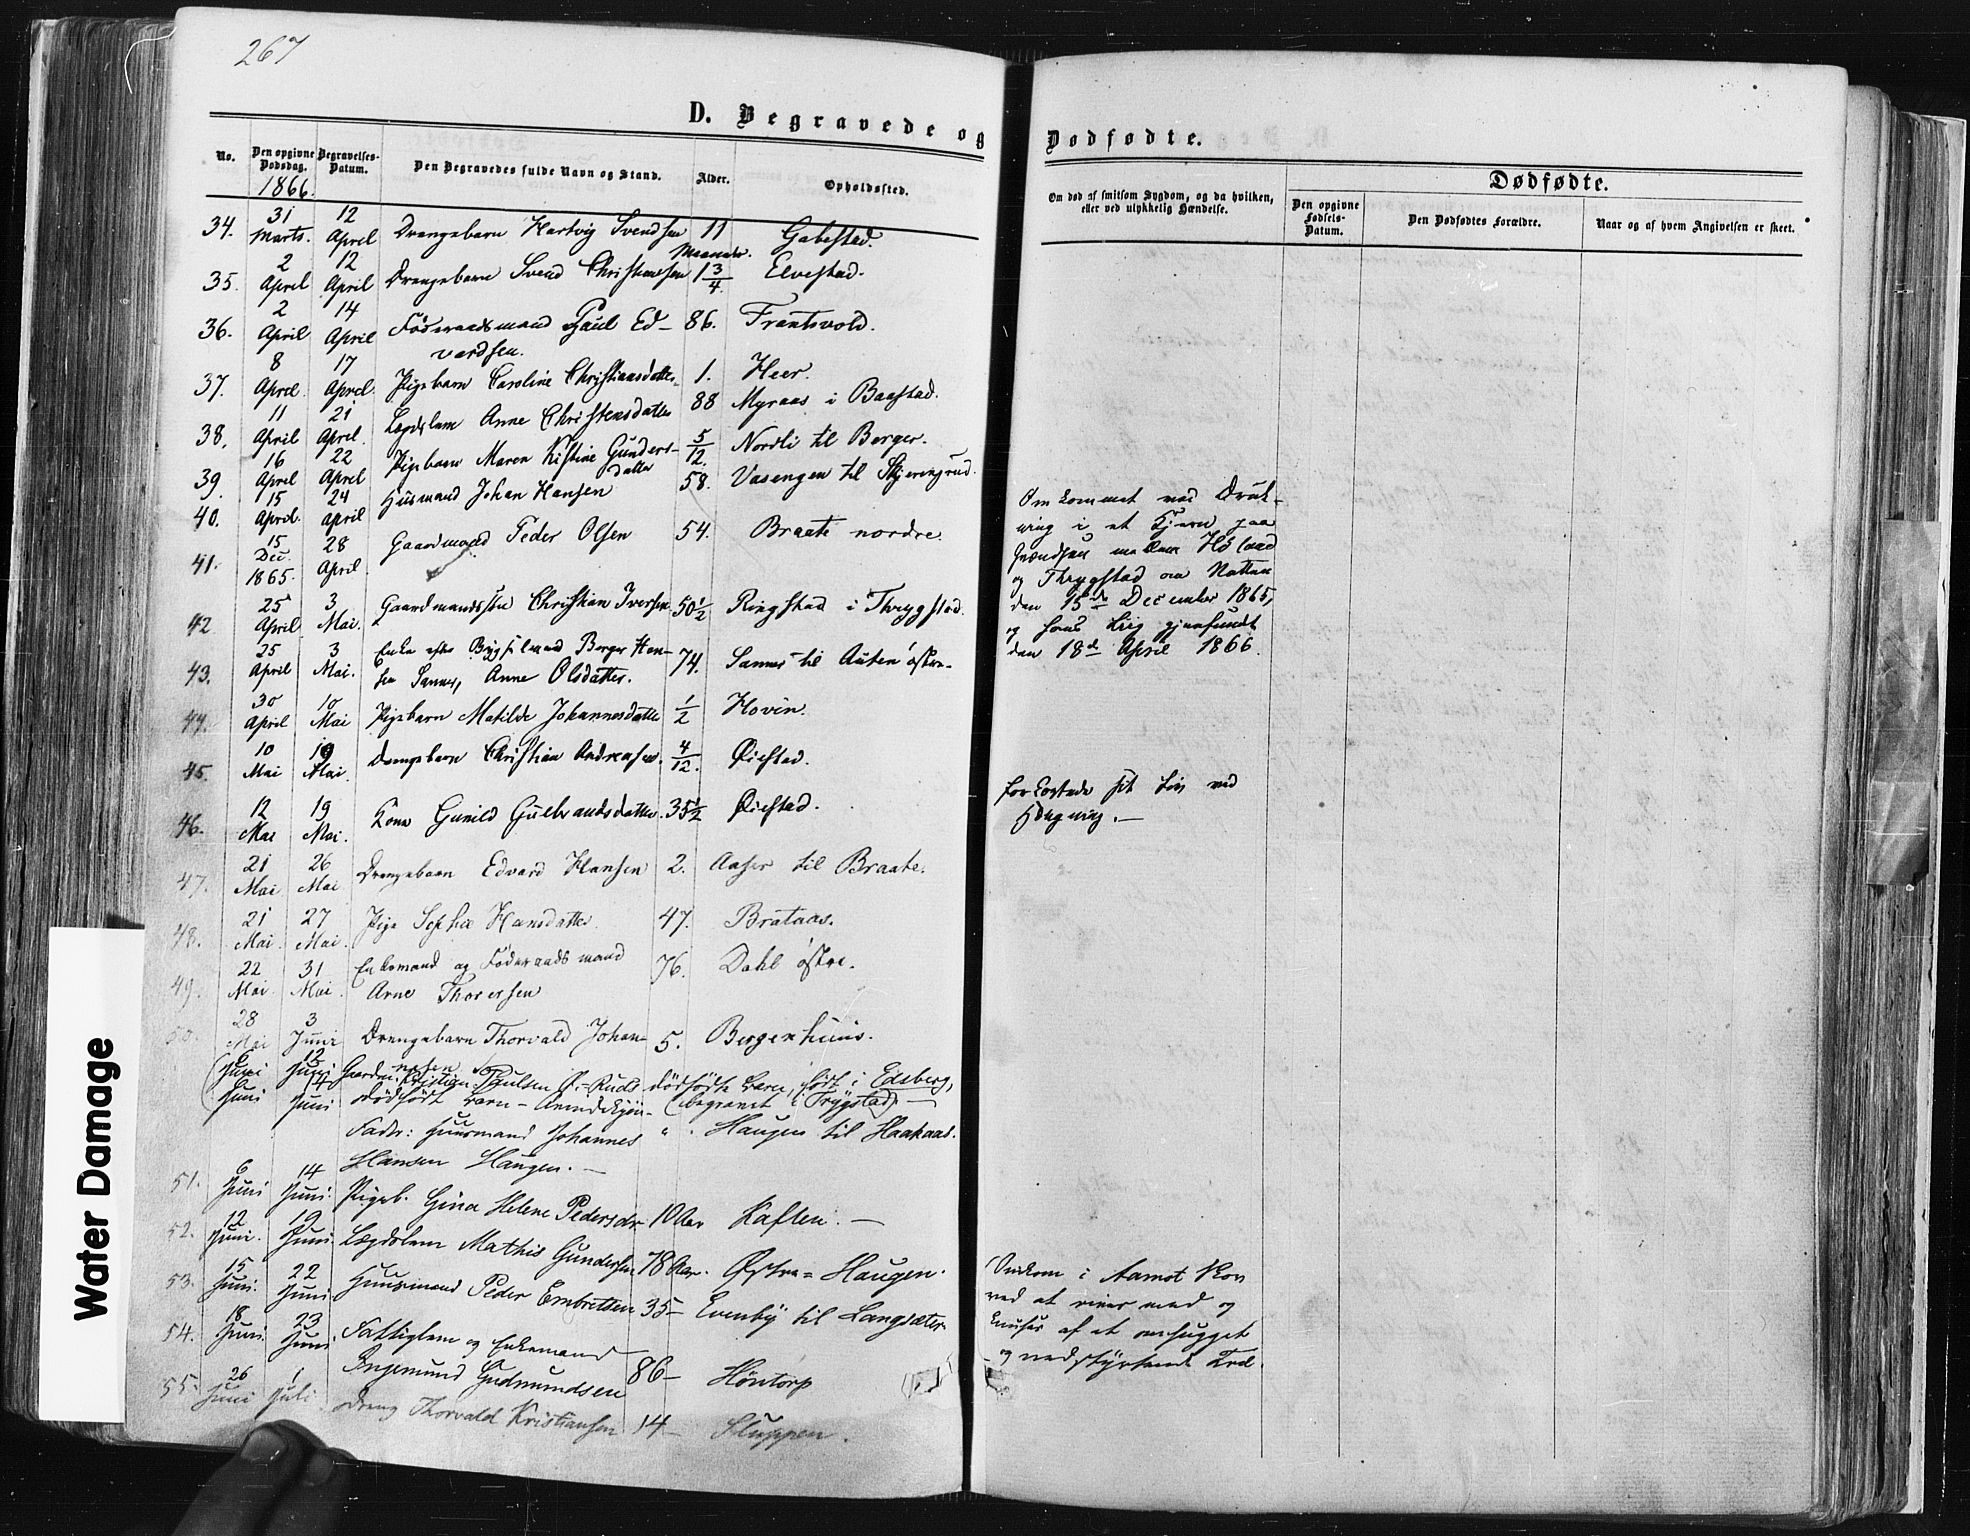 267
D. Begravede og
No.
Den opgivne Dødsdag.
1866.
Begravelses-Datum.
Den Begravedes fulde Navn og Stand.
Alder.
Opholdssted.
34. 31 Marts. 12 April Drengebarn Hartvig Svendsen 11 Maaneder. Gabestad.
35. 2 April 12 April Drengebarn Svend Christiansen 1 3/4. Elvestad.
36. 2 April 14 April Føderaadsmand Paul Ed-
vardsen. 86. Frantsvold.
37. 8 April 17 April. Pigebarn Caroline Christiansdatter 1. Heer.
38. 11 April 21 April. Lægdslem Anne Christensdatter 88 Myraas i Baastad.
39. 16 April 22 April Pigebarn Maren Kistine Gunders-
datter 5/12. Nordli til Borger.
40. 15 April. 24 April Husmand Johan Hansen 58. Vasengen til Skjerengrud.
41. 15 Dec. 1865. 28 April. Gaardmand Peder Olsen 54. Braate nordre.
42 25 April 3 Mai. Gaardmandssøn Christian Iversen 50 1/2 Ringstad i Thrygstad.
43. 25 April 3 Mai. Enke efter Bygselmand Borger Han-
sen Sannes, Anne Olsdatter. 74. Sannes til Auten østre.
44. 30 April 10 Mai Pigebarn Matilde Johannesdatter 1/2 Hovin.
45. 10 Mai 19 Mai. Drengebarn Christian Andreasen. 4/12. Øiestad.
46. 12 Mai 19 Mai. Kone Gunild Gulbrandsdatter. 35 1/2 Øiestad.
47. 21 Mai 26 Mai Drengebarn Edvard Hansen 2. Aaser til Braate.
48. 21 Mai. 27 Mai. Pige Sophie Hansdatter 47. Brataas.
49. 22 Mai. 31 Mai. Enkemand og Føderaadsmand
Arne Thoresen 76. Dahl østre.
50. 28 Mai 3 Juni Drengebarn Thorvald Johan-
nesen 5. Bergenhuus.
6 Juni 12 Juni Gaardm. Kristian Paulsen Ø.-Ruds dødfødte barn, født i Edsberg,
(begravet i Trygstad).
6 Juni 14 Juni dødfødt barn - Qvindekjøn -
Fader: Huusmand Johannes " . Haugen til Haakaas.
Hansen Haugen. —
51. 6 Juni 14 Juni. Pigeb. Gina Helene Pedersdr 10 Aar Kaften. —
52. 12 Juni. 19 Juni. Lægdslem Mathis Gundersen 78 Aar. Østre = Haugen.
53. 15 Juni. 22 Juni Huusmand Peder Embretsen 35 - Evenby til Langsæter
54. 18 Juni. 23 Juni. Fattiglem og Enkemand
Ingemund Gudmundsen 86 - Höntorp
55. 26 Juni 1 Juli dreng Thorvald Kristiansen 14 - Sluppen.
Dødfødte.
Om død af smitsom Sygdom, og da hvilken,
eller ved ulykkelig Hændelse.
Dødfødte.
Den opgivne Fødsels-Datum.
Den Dødfødtes Forældre.
Naar og af hvem Angivelsen er skeet.
Omkommet ved Druk-
ning i et Kjern paa
Grændsen mellem Høland
og Thrygstad om Natten
den 15de December 1865,
og hans Liig gjenfundet
den 18de April 1866.
forkortede sit Liv ved
Hængning. —
Omkom i Aamot Skov
ved at rives med og
knuses af et omhugget
og nedstyrtende Træ.
Water Damage